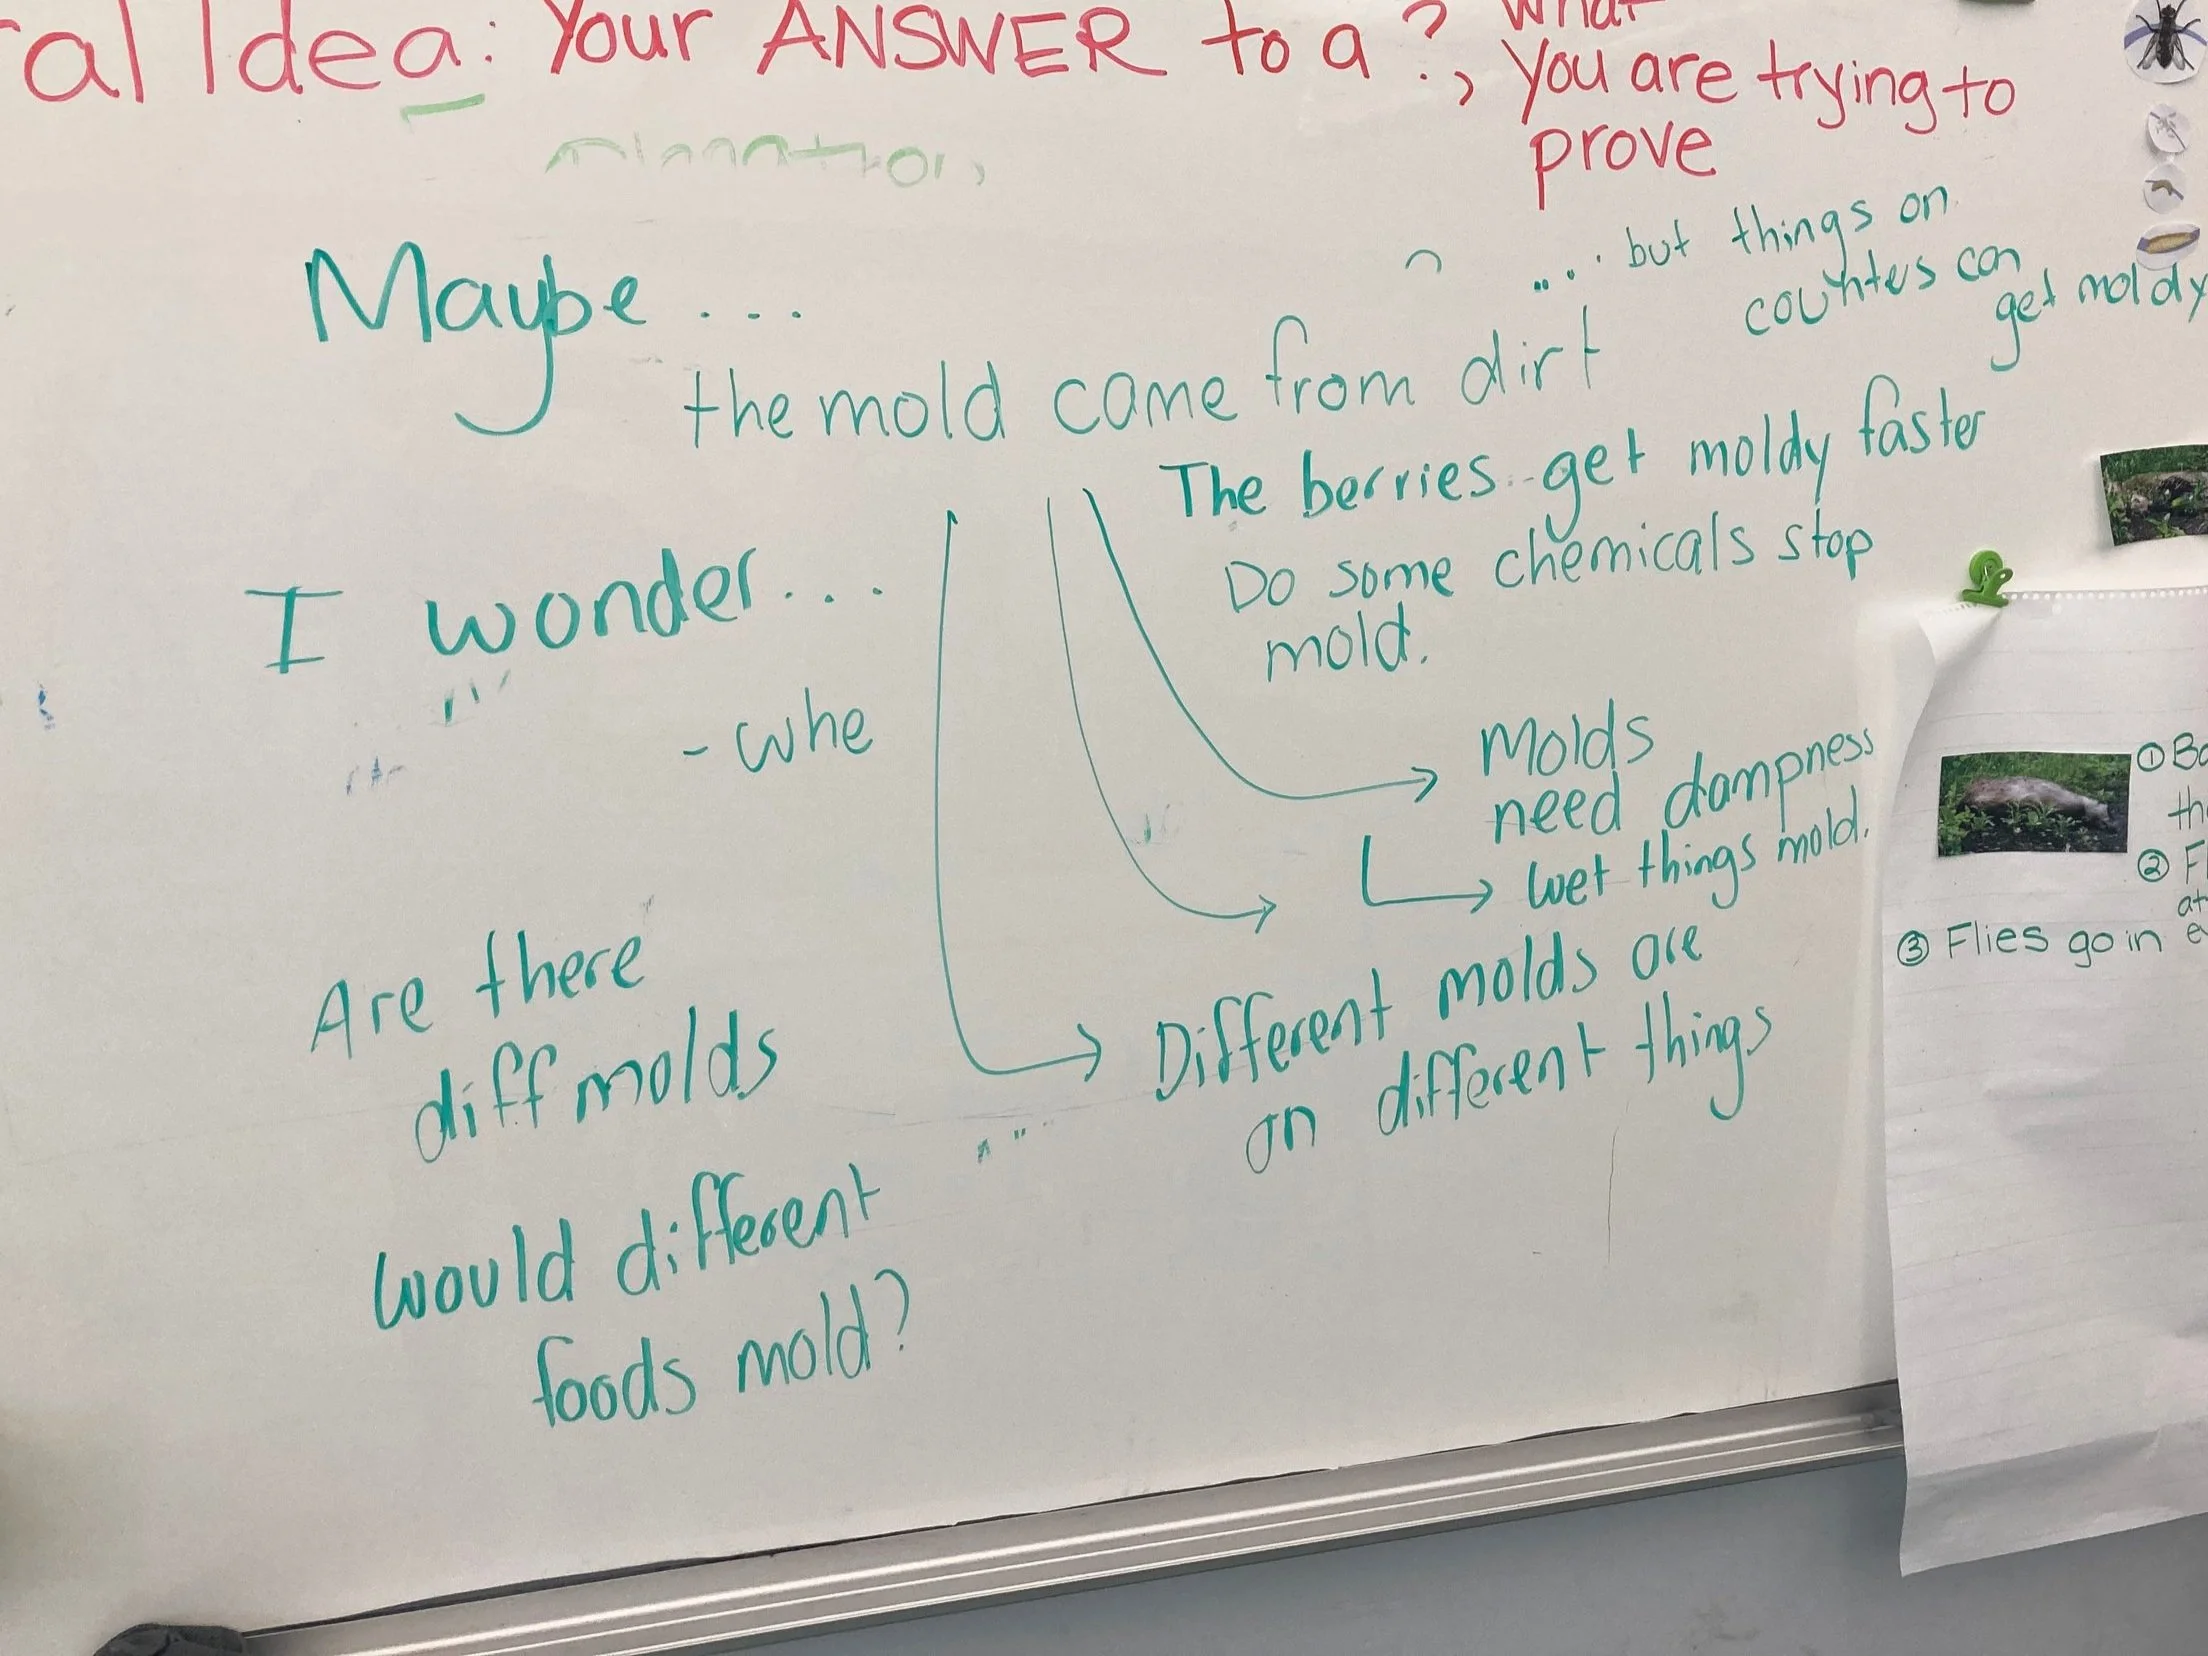 al Idea: Your ANSWER to a ?, What
you are trying to
prove
Maybe ...
.... but things on
counters can
get moldy
the mold came from dirt
The berries get moldy faster
Do some chemicals stop
mold.
I wonder...
- whe
Molds
need dampness
wet things mold.
Different molds are
on different things
Are there
diff molds
would different
foods mold?
①
②
③ Flies go in